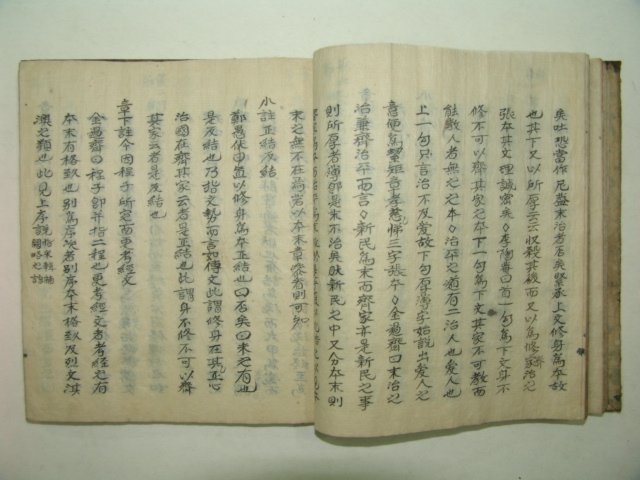 矣吐恐當作尼 盡末治者否矣緊承上文修身爲本故
也其下又以所厚云云收殺其後而又以爲修家治之
張本其文理誠密矣◇李陶菴曰首一句爲下文身不
修不可以齊其家之本下一句爲下文其家不可教而
能敎人者無之之本◇治平之道有二治人也愛人也
上一句只言治不及愛故下句厚薄字始說出愛人之
意便爲絜矩章孝慈悌三字張本◇金過齋曰末治之
治兼齊治平而言◇新民爲末而齊家亦是新民之事
則所厚者薄卽是末不治矣然新民之中又分本末則
末之無不在焉當以本末章參看則可知
小註正結反結
鄭愚伏中置以修身爲本正結也曰否矣曰未之有也
是反結也乃指文勢而言如傳文此謂修身在其正心
治國在齊其家云者是正結也此謂身不修不可以齊
其家云者是反結也
章下註今因程子所定而更考經文
金過齋曰程子卽幷指二程也更考經文者考經之有
本末有格致也別爲序次者別序本末格致及烈文淇
澳之類也此見上序說